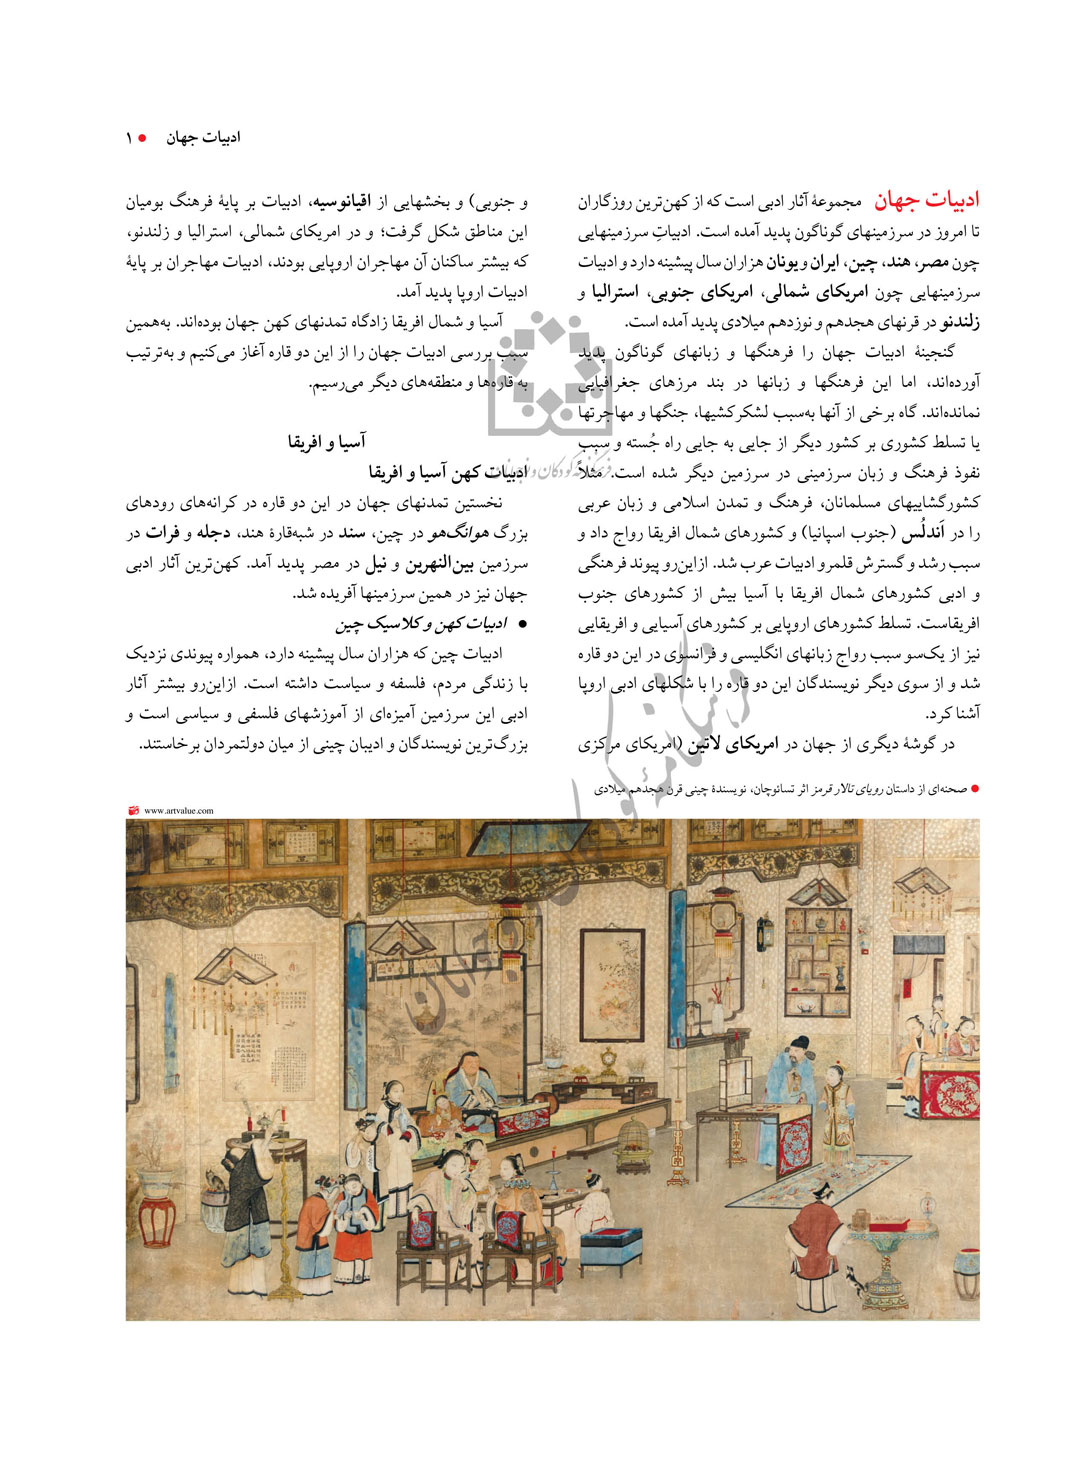 ادبیات جهان ● ۱
ادبیات جهان مجموعهٔ آثار ادبی است که از کهن‌ترین روزگاران
تا امروز در سرزمینهای گوناگون پدید آمده است. ادبیاتِ سرزمینهایی
چون مصر، هند، چین، ایران و یونان هزاران سال پیشینه دارد و ادبیات
سرزمینهایی چون امریکای شمالی، امریکای جنوبی، استرالیا و
زلندنو در قرنهای هجدهم و نوزدهم میلادی پدید آمده است.
گنجینهٔ ادبیات جهان را فرهنگها و زبانهای گوناگون پدید
آورده‌اند، اما این فرهنگها و زبانها در بند مرزهای جغرافیایی
نمانده‌اند. گاه برخی از آنها به‌سبب لشکرکشیها، جنگها و مهاجرتها
یا تسلط کشوری بر کشور دیگر از جایی به جایی راه جُسته و سبب
نفوذ فرهنگ و زبان سرزمینی در سرزمین دیگر شده است. مثلاً
کشورگشاییهای مسلمانان، فرهنگ و تمدن اسلامی و زبان عربی
را در اَندلُس (جنوب اسپانیا) و کشورهای شمال افریقا رواج داد و
سبب رشد و گسترش قلمرو ادبیات عرب شد. ازاین‌رو پیوند فرهنگی
و ادبی کشورهای شمال افریقا با آسیا بیش از کشورهای جنوب
افریقاست. تسلط کشورهای اروپایی بر کشورهای آسیایی و افریقایی
نیز از یک‌سو سبب رواج زبانهای انگلیسی و فرانسوی در این دو قاره
شد و از سوی دیگر نویسندگان این دو قاره را با شکلهای ادبی اروپا
آشنا کرد.
در گوشهٔ دیگری از جهان در امریکای لاتین (امریکای مرکزی
و جنوبی) و بخشهایی از اقیانوسیه، ادبیات بر پایهٔ فرهنگ بومیان
این مناطق شکل گرفت؛ و در امریکای شمالی، استرالیا و زلندنو،
که بیشتر ساکنان آن مهاجران اروپایی بودند، ادبیات مهاجران بر پایهٔ
ادبیات اروپا پدید آمد.
آسیا و شمال افریقا زادگاه تمدنهای کهن جهان بوده‌اند. به‌همین
سبب بررسی ادبیات جهان را از این دو قاره آغاز می‌کنیم و به‌ترتیب
به قاره‌ها و منطقه‌های دیگر می‌رسیم.
آسیا و افریقا
ادبیات کهن آسیا و افریقا
نخستین تمدنهای جهان در این دو قاره در کرانه‌های رودهای
بزرگ هوانگ‌هو در چین، سند در شبه‌قارهٔ هند، دجله و فرات در
سرزمین بین‌النهرین و نیل در مصر پدید آمد. کهن‌ترین آثار ادبی
جهان نیز در همین سرزمینها آفریده شد.
● ادبیات کهن و کلاسیک چین
ادبیات چین که هزاران سال پیشینه دارد، همواره پیوندی نزدیک
با زندگی مردم، فلسفه و سیاست داشته است. ازاین‌رو بیشتر آثار
ادبی این سرزمین آمیزه‌ای از آموزشهای فلسفی و سیاسی است و
بزرگ‌ترین نویسندگان و ادیبان چینی از میان دولتمردان برخاستند.
فرهنگنامه کودکان و نوجوانان
فرهنگنامهٔ کودکان و نوجوانان
● صحنه‌ای از داستان رویای تالار قرمز اثر تسائوچان، نویسندهٔ چینی قرن هجدهم میلادی
www.artvalue.com